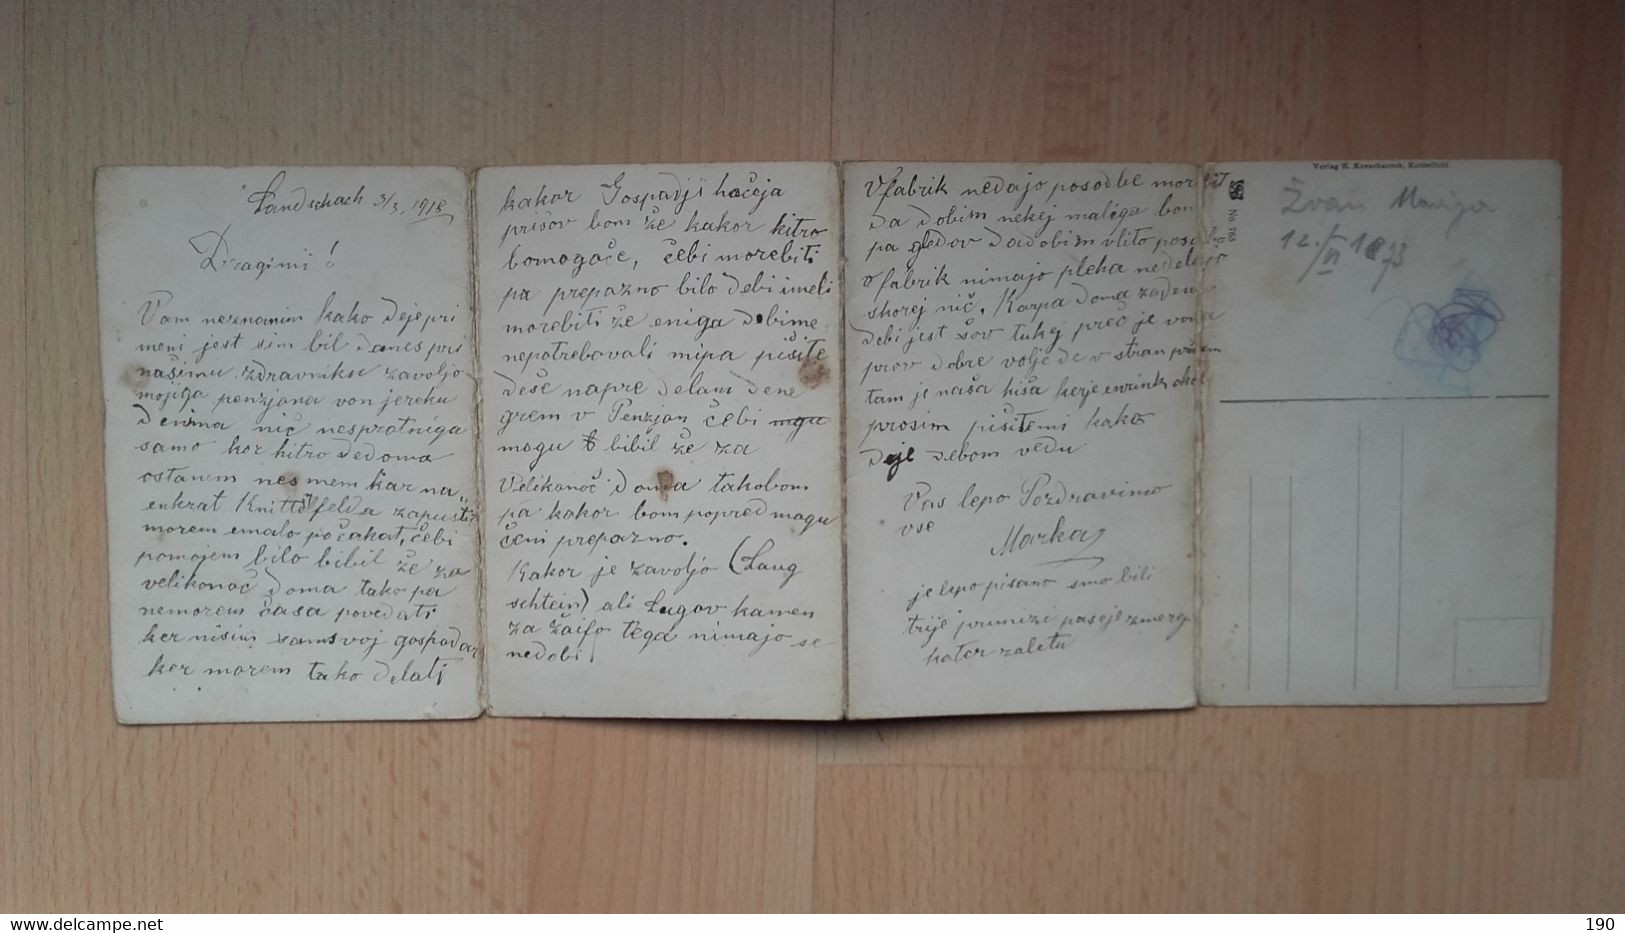 Landschach 3/3, 1918
Dragimi!
Vam neznanim kako deje pri
meni jest sim bil danes pri
našimu zdravniku zavoljo
mojiga penzjana von jereku
de nima nič nespratniga
samo kor hitro de doma
ostanem nesmem kar na„
enkrat Knittelfelda zapustit
morem emalo počakat, čebi
pomojem bilo bibil že za
velikonoč doma tako pa
nemorem časa povedati
ker nisim samsvoj gospodar
ker morem tako delati
kakor Gospadji hočeja
prišov bom že kakor hitro
bomogače, čebi morebiti
pa prepazno bilo debi imeli
morebiti že eniga dobime
nepotrebovali mipa pišite
deše napre delam dene
grem v Penzjan čebi mgu
mogu t bibil že za
Velikonoč doma takobom
pa kakor bom popred magu
čeni prepazno.
Kakor je zavoljo (Laug
schtein) ali Lugov kamen
za žaifo tega nimajo se
nedobi
V fabrik nedajo posodbe morbit
da dobim nekej maliga bom
pa gledov dadobim vlito posodbo
v fabrik nimajo pleha nedelajo
skorej nič. Karpa doma zaden
debi jest šov tukej preč je vona
prov dobre volje de v stran pridem
tam je naša hiša kerje enrink okol
prosim pišitemi kako
deje debom vedu
Vas lepo Pozdravimo
vse
Marka
je lepo pisano smo bili
trije prmizi paseje zmerej
kater zaletu
Verlag H. Knesthaurek, Knittelfeld
No. 763
Žvan Marija
12./VI 1873
190